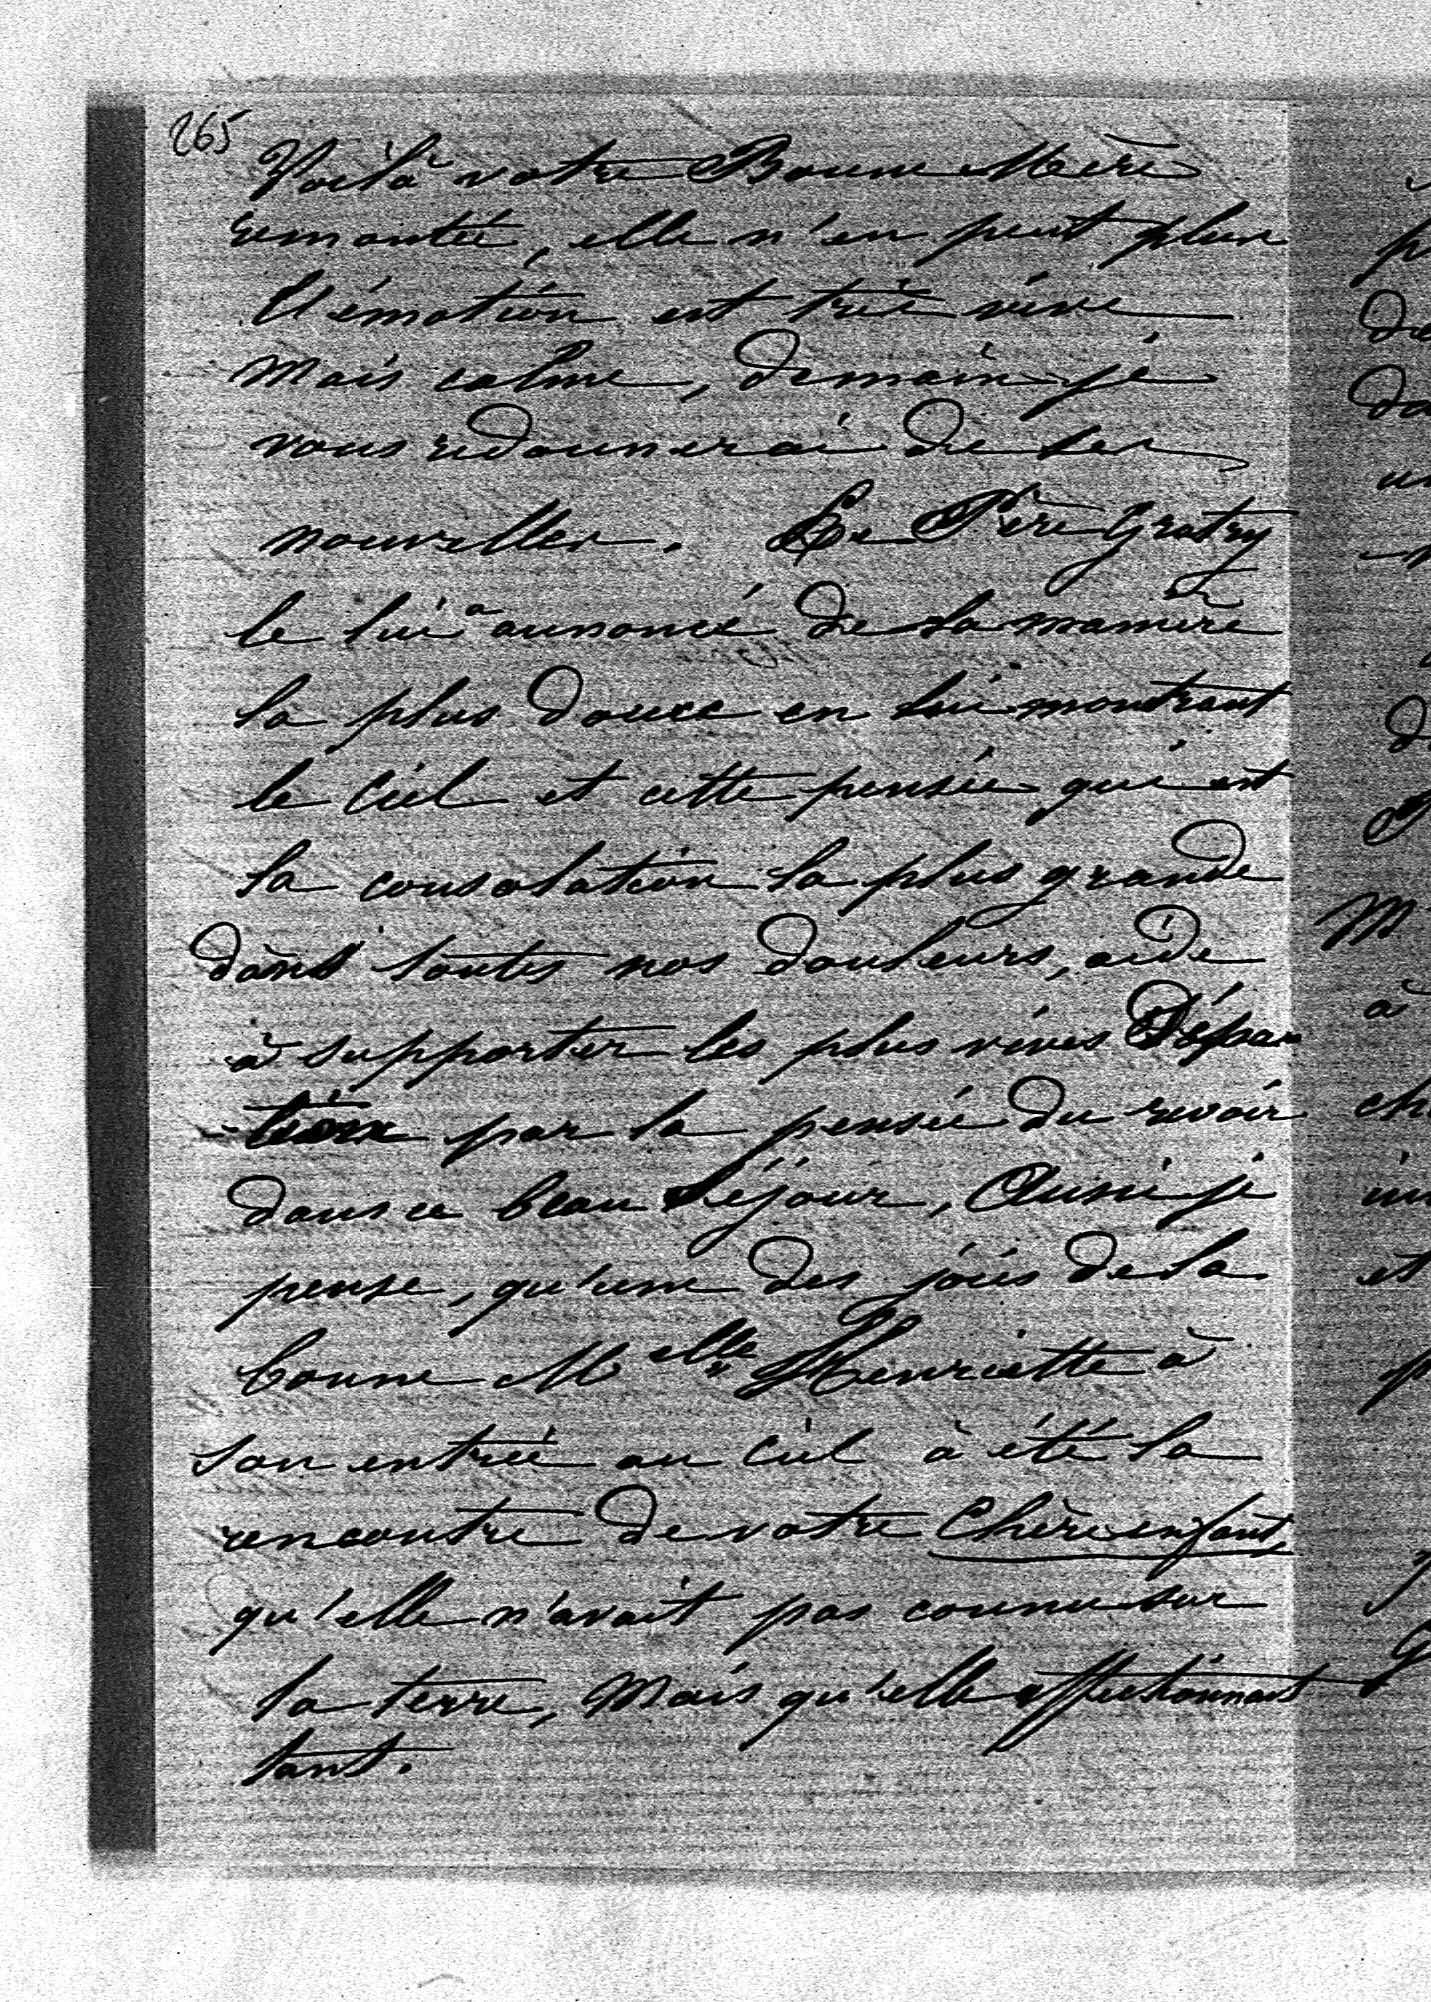 265
Voilà votre Bonne Mère
remontée, elle n'en peut plus
l'émotion est très vive
mais calme, demain je
vous redonnerai de ses
nouvelles. Le Père Gratry
le lui a annoncé de la manière
la plus douce en lui montrant
le Ciel et cette pensée qui est
la consolation la plus grande
dans toutes nos douleurs, aide
à supporter les plus vives Sépara
-tion par la pensée du revoir
dans ce beau Séjour, Aussi je
pense, qu'une des joies de la
bonne Melle Henriette à
son entrée au Ciel à été la
rencontre de votre Chère enfant
qu'elle n'avait pas connu sur
la terre, Mais qu'elle affectionnait
tant.